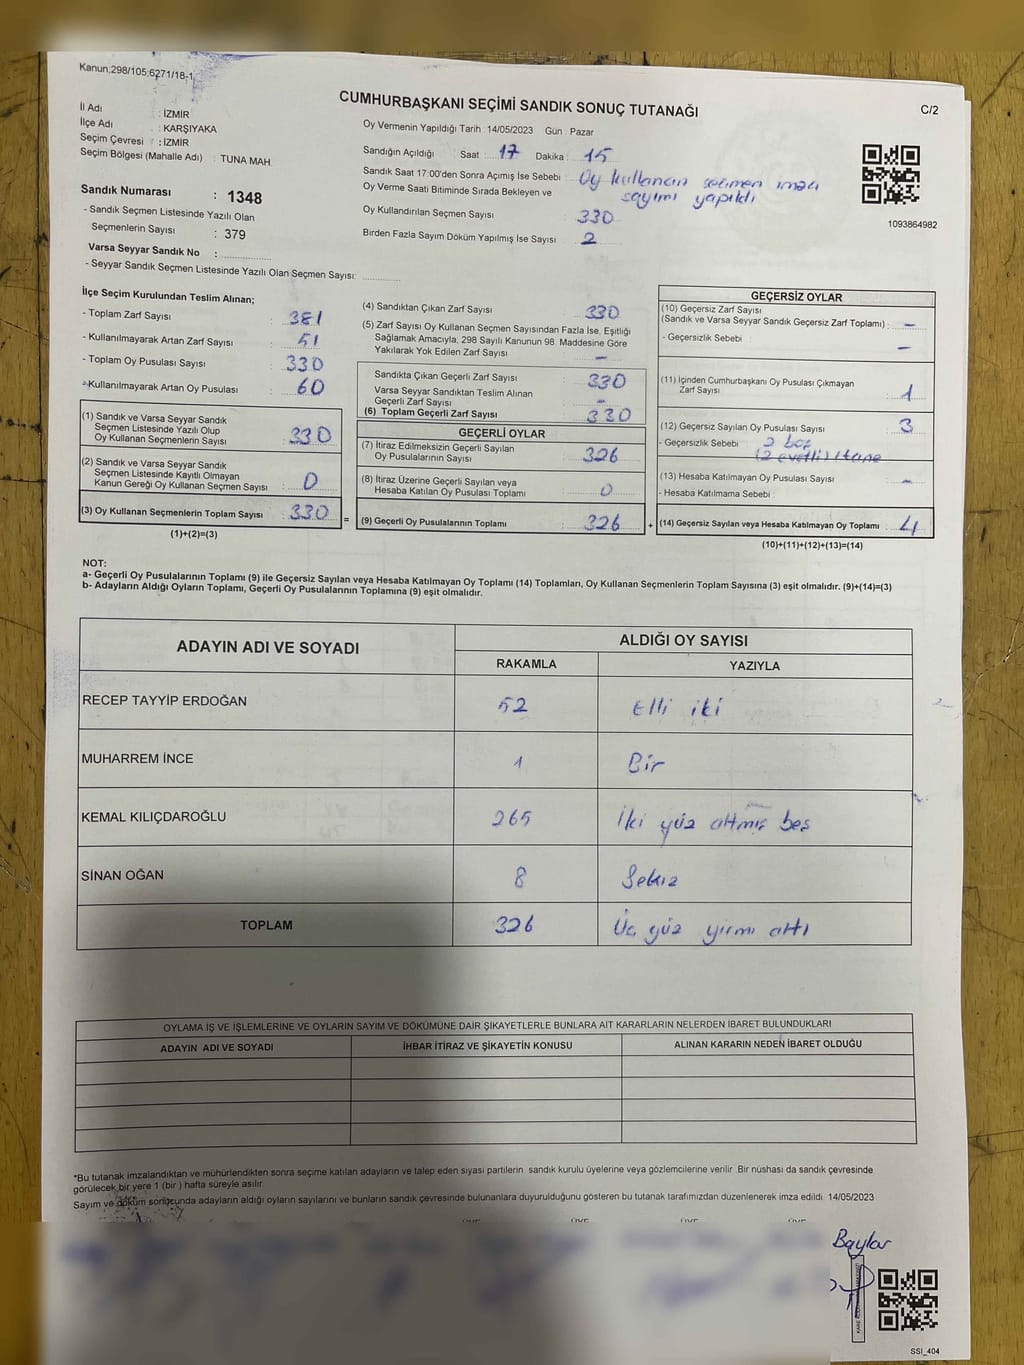 Kanun:298/105;6271/18-1
C/2
CUMHURBAŞKANI SEÇİMİ SANDIK SONUÇ TUTANAĞI
İl Adı : İZMİR
İlçe Adı : KARŞIYAKA
Seçim Çevresi : İZMİR
Seçim Bölgesi (Mahalle Adı) : TUNA MAH.
Sandık Numarası : 1348
- Sandık Seçmen Listesinde Yazılı Olan
Seçmenlerin Sayısı : 379
Varsa Seyyar Sandık No :
- Seyyar Sandık Seçmen Listesinde Yazılı Olan Seçmen Sayısı:
Oy Vermenin Yapıldığı Tarih : 14/05/2023 Gün : Pazar
Sandığın Açıldığı Saat : 17 Dakika : 15
Sandık Saat 17:00'den Sonra Açımış İse Sebebi : Oy kullanan seçmen imza
sayımı yapıldı
Oy Verme Saati Bitiminde Sırada Bekleyen ve
Oy Kullandırılan Seçmen Sayısı : 330
Birden Fazla Sayım Döküm Yapılmış İse Sayısı : 2
1093864982
İlçe Seçim Kurulundan Teslim Alınan;
- Toplam Zarf Sayısı : 381
- Kullanılmayarak Artan Zarf Sayısı : 51
- Toplam Oy Pusulası Sayısı : 330
- Kullanılmayarak Artan Oy Pusulası : 60
(1) Sandık ve Varsa Seyyar Sandık
Seçmen Listesinde Yazılı Olup
Oy Kullanan Seçmenlerin Sayısı : 330
(2) Sandık ve Varsa Seyyar Sandık
Seçmen Listesinde Kayıtlı Olmayan
Kanun Gereği Oy Kullanan Seçmen Sayısı : 0
(3) Oy Kullanan Seçmenlerin Toplam Sayısı : 330
(1)+(2)=(3)
=
(4) Sandıktan Çıkan Zarf Sayısı : 330
(5) Zarf Sayısı Oy Kullanan Seçmen Sayısından Fazla İse, Eşitliği
Sağlamak Amacıyla; 298 Sayılı Kanunun 98. Maddesine Göre
Yakılarak Yok Edilen Zarf Sayısı : -
Sandıkta Çıkan Geçerli Zarf Sayısı : 330
Varsa Seyyar Sandıktan Teslim Alınan
Geçerli Zarf Sayısı : -
(6) Toplam Geçerli Zarf Sayısı : 330
GEÇERLİ OYLAR
(7) İtiraz Edilmeksizin Geçerli Sayılan
Oy Pusulalarının Sayısı : 326
(8) İtiraz Üzerine Geçerli Sayılan veya
Hesaba Katılan Oy Pusulası Toplamı : 0
(9) Geçerli Oy Pusulalarının Toplamı : 326
+
GEÇERSİZ OYLAR
(10) Geçersiz Zarf Sayısı
(Sandık ve Varsa Seyyar Sandık Geçersiz Zarf Toplamı) : -
- Geçersizlik Sebebi : -
(11) İçinden Cumhurbaşkanı Oy Pusulası Çıkmayan
Zarf Sayısı : 1
(12) Geçersiz Sayılan Oy Pusulası Sayısı : 3
- Geçersizlik Sebebi :
(13) Hesaba Katılmayan Oy Pusulası Sayısı : -
- Hesaba Katılmama Sebebi :
(14) Geçersiz Sayılan veya Hesaba Katılmayan Oy Toplamı : 4
(10)+(11)+(12)+(13)=(14)
NOT:
a- Geçerli Oy Pusulalarının Toplamı (9) ile Geçersiz Sayılan veya Hesaba Katılmayan Oy Toplamı (14) Toplamları, Oy Kullanan Seçmenlerin Toplam Sayısına (3) eşit olmalıdır. (9)+(14)=(3)
b- Adayların Aldığı Oyların Toplamı, Geçerli Oy Pusulalarının Toplamına (9) eşit olmalıdır.
ADAYIN ADI VE SOYADI ALDIĞI OY SAYISI
RAKAMLA YAZIYLA
RECEP TAYYİP ERDOĞAN 52 Elli iki
MUHARREM İNCE 1 Bir
KEMAL KILIÇDAROĞLU 265 İki yüz altmış beş
SİNAN OĞAN 8 Sekiz
TOPLAM 326 Üç yüz yirmi altı
OYLAMA İŞ VE İŞLEMLERİNE VE OYLARIN SAYIM VE DÖKÜMÜNE DAİR ŞİKAYETLERLE BUNLARA AİT KARARLARIN NELERDEN İBARET BULUNDUKLARI
ADAYIN ADI VE SOYADI İHBAR İTİRAZ VE ŞİKAYETİN KONUSU ALINAN KARARIN NEDEN İBARET OLDUĞU
*Bu tutanak imzalandıktan ve mühürlendikten sonra seçime katılan adayların ve talep eden siyasi partilerin sandık kurulu üyelerine veya gözlemcilerine verilir .Bir nüshası da sandık çevresinde
görülecek bir yere 1 (bir ) hafta süreyle asılır.
Sayım ve döküm sonucunda adayların aldığı oyların sayılarını ve bunların sandık çevresinde bulunanlara duyurulduğunu gösteren bu tutanak tarafımızdan düzenlenerek imza edildi. 14/05/2023
ÜYE ÜYE ÜYE ÜYE
Baylar
SSI_404